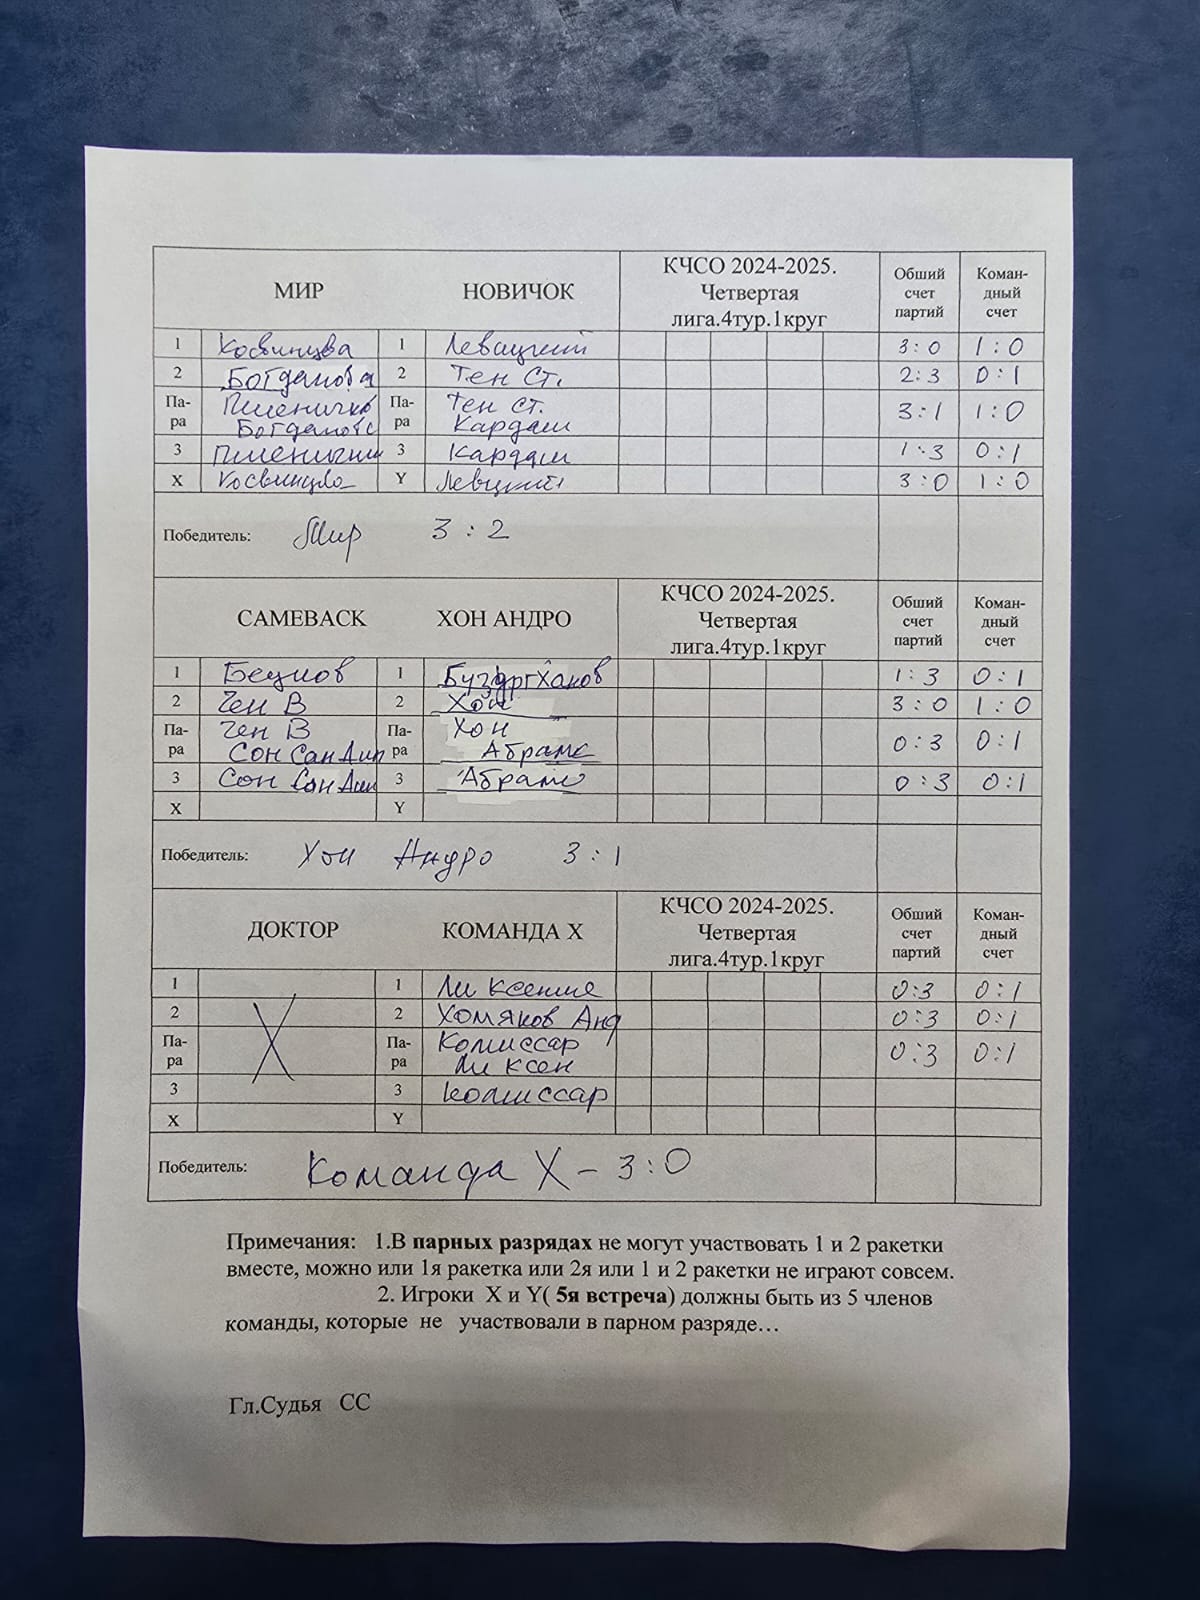 МИР НОВИЧОК КЧСО 2024-2025. Четвертая лига.4тур.1круг Обший счет партий Коман-дный счет
1 Косвинцева 1 Левацкий 3:0 1:0
2 Богданова 2 Тен Ст. 2:3 0:1
Па-ра Пшеничко Па-ра Тен ст. 3:1 1:0
Богданова Кардаш
3 3 Кардаш 1:3 0:1
X Косвинцева Y Левицкий 3:0 1:0
Победитель: Мир 3:2
САМЕВАСК ХОН АНДРО КЧСО 2024-2025. Четвертая лига.4тур.1круг Обший счет партий Коман-дный счет
1 1 Буздргханов 1:3 0:1
2 Чен В 2 Хон 3:0 1:0
Па-ра Чен В Па-ра Хон 0:3 0:1
Сон Сан Дин Абрамс
3 Сон Сан Дин 3 Абрамс 0:3 0:1
X Y
Победитель: Хон Андро 3:1
ДОКТОР КОМАНДА Х КЧСО 2024-2025. Четвертая лига.4тур.1круг Обший счет партий Коман-дный счет
1 1 Ли Ксения 0:3 0:1
2 2 Хомяков Анд 0:3 0:1
Па-ра Па-ра Комиссар 0:3 0:1
Ли Ксен
3 3 Комиссар
X Y
Победитель: Команда Х – 3:0
Примечания: 1.В парных разрядах не могут участвовать 1 и 2 ракетки
вместе, можно или 1я ракетка или 2я или 1 и 2 ракетки не играют совсем.
2. Игроки X и Y( 5я встреча) должны быть из 5 членов
команды, которые не участвовали в парном разряде…
Гл.Судья СС